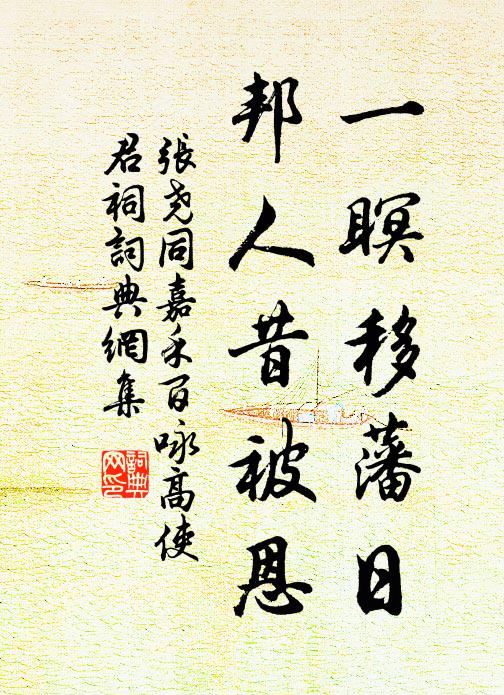 一瞑移藩日
邦人昔被恩
張尧同嘉禾百咏高使
君祠詞典網集
詞典
网印